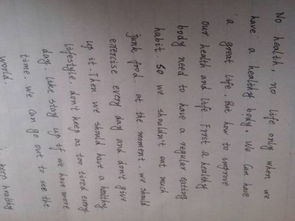 No health, no life only when we
have a healthy body, We can have
a great life. But how to improve
our health and life First a healthy
body need to have a regular eating
habit So we shouldn't eat much
junk food at the moment. we should
exercise every day and don't give
up it. Then we should have a healthy
lifestyle don't keep us too tired every
day. like stay up if we have more
time. we can go out to see the
world. keep healthy